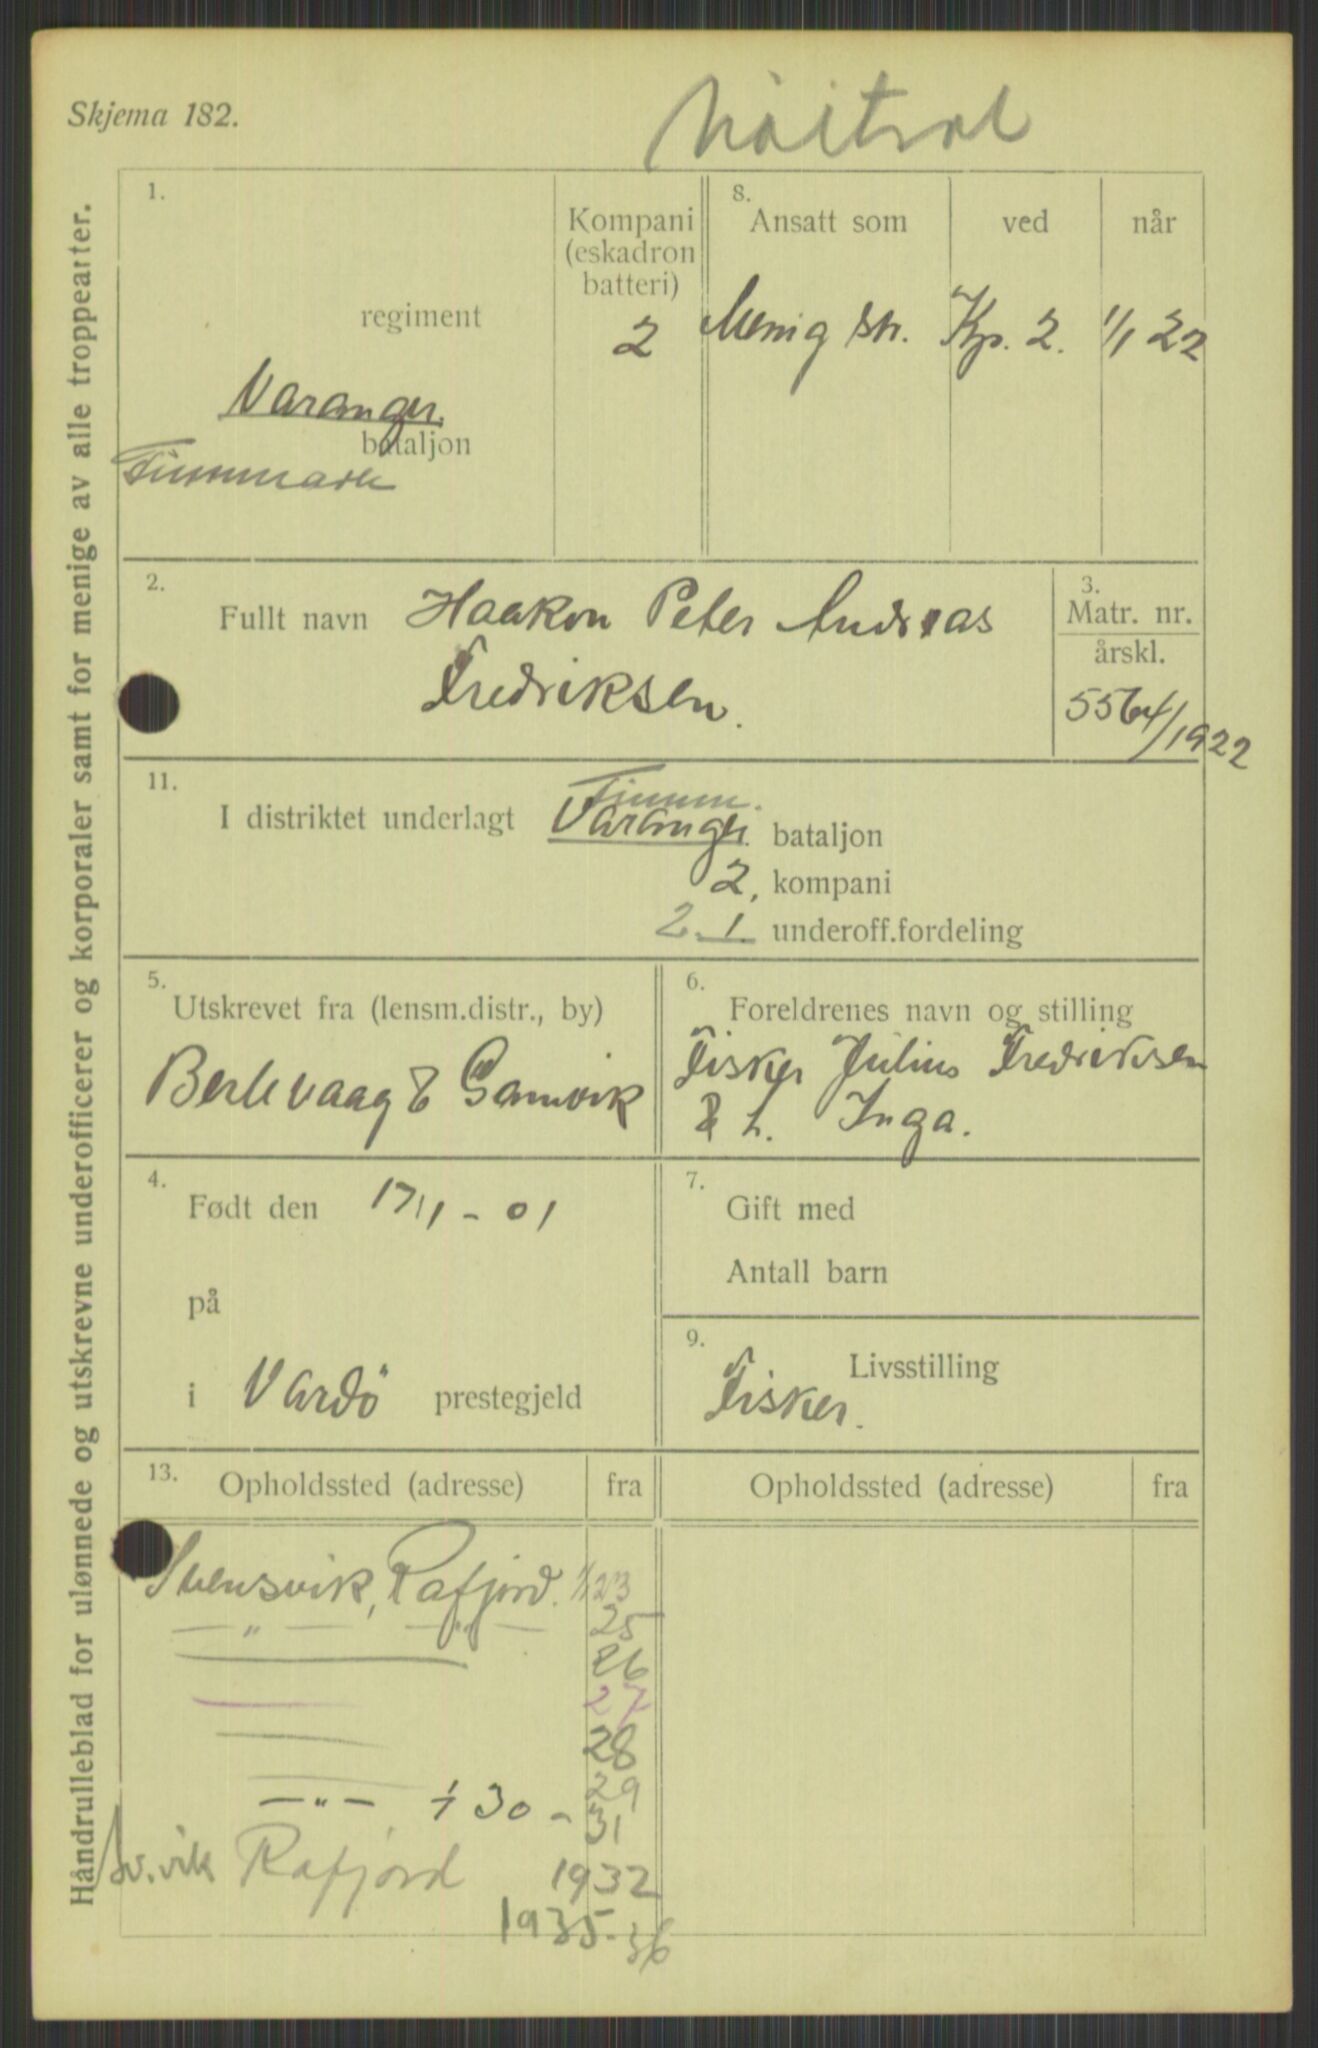 Skjema 182.
Nöitral
Håndrulleblad for ulønnede og utskrevne underofficerer og korporaler samt for menige av alle troppearter.
1.
regiment
Varanger
bataljon
Finnmark
Kompani
(eskadron
batteri)
2
8.
Ansatt som ved når
Menig str. Kp. 2. 1/1 22
2.
Fullt navn Haakon Peter Andreas
Fredriksen.
3.
Matr. nr.
årskl.
5564/1922
11.
Finnm.
I distriktet underlagt Varanger bataljon
2. kompani
2.1. underoff.fordeling
5.
Utskrevet fra (lensm.distr., by)
Berlevaag & Gamvik
6.
Foreldrenes navn og stilling
Fisker Julius Fredriksen
& h. Inga.
4.
Født den 17/1 - 01
på
i Vardö prestegjeld
7.
Gift med
Antall barn
9.
Livsstilling
Fisker.
13.
Opholdssted (adresse) fra Opholdssted (adresse) fra
Svensvik, Rafjord. 1/1 23
— " — — " — 25
26
27
28
29
— " — 30 - 31
Sv.vik Rafjord 1932
1935-36